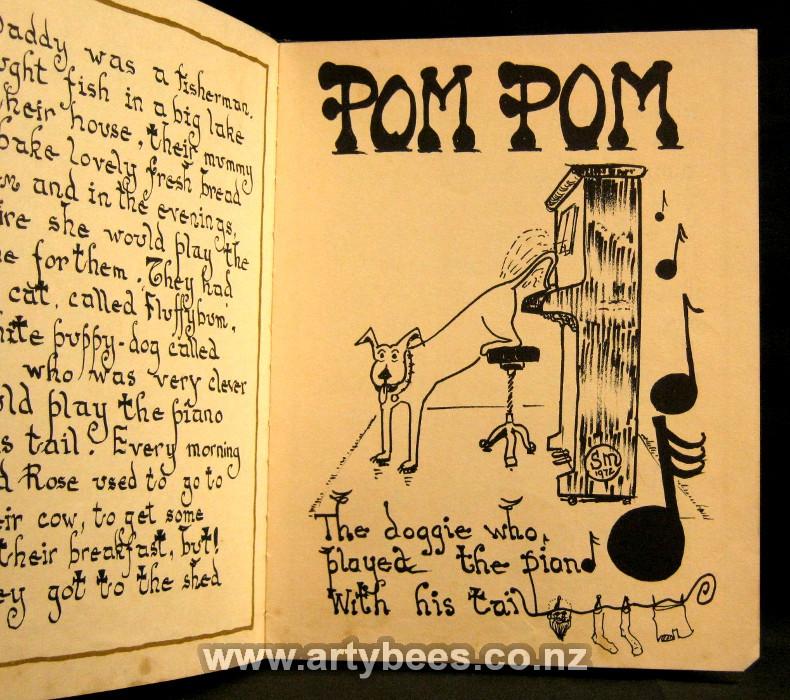 Daddy was a fisherman.
fish in a big lake
their house, their mummy
bake lovely fresh bread
and in the evenings,
she would play the
for them. They had
cat, called Fluffybum,
puppy-dog called
who was very clever
play the piano
tail. Every morning
Rose used to go to
cow, to get some
their breakfast, but!
got to the shed
POM POM
SM
1972
The doggie who,
played the piano
With his tail
www.artybees.co.nz